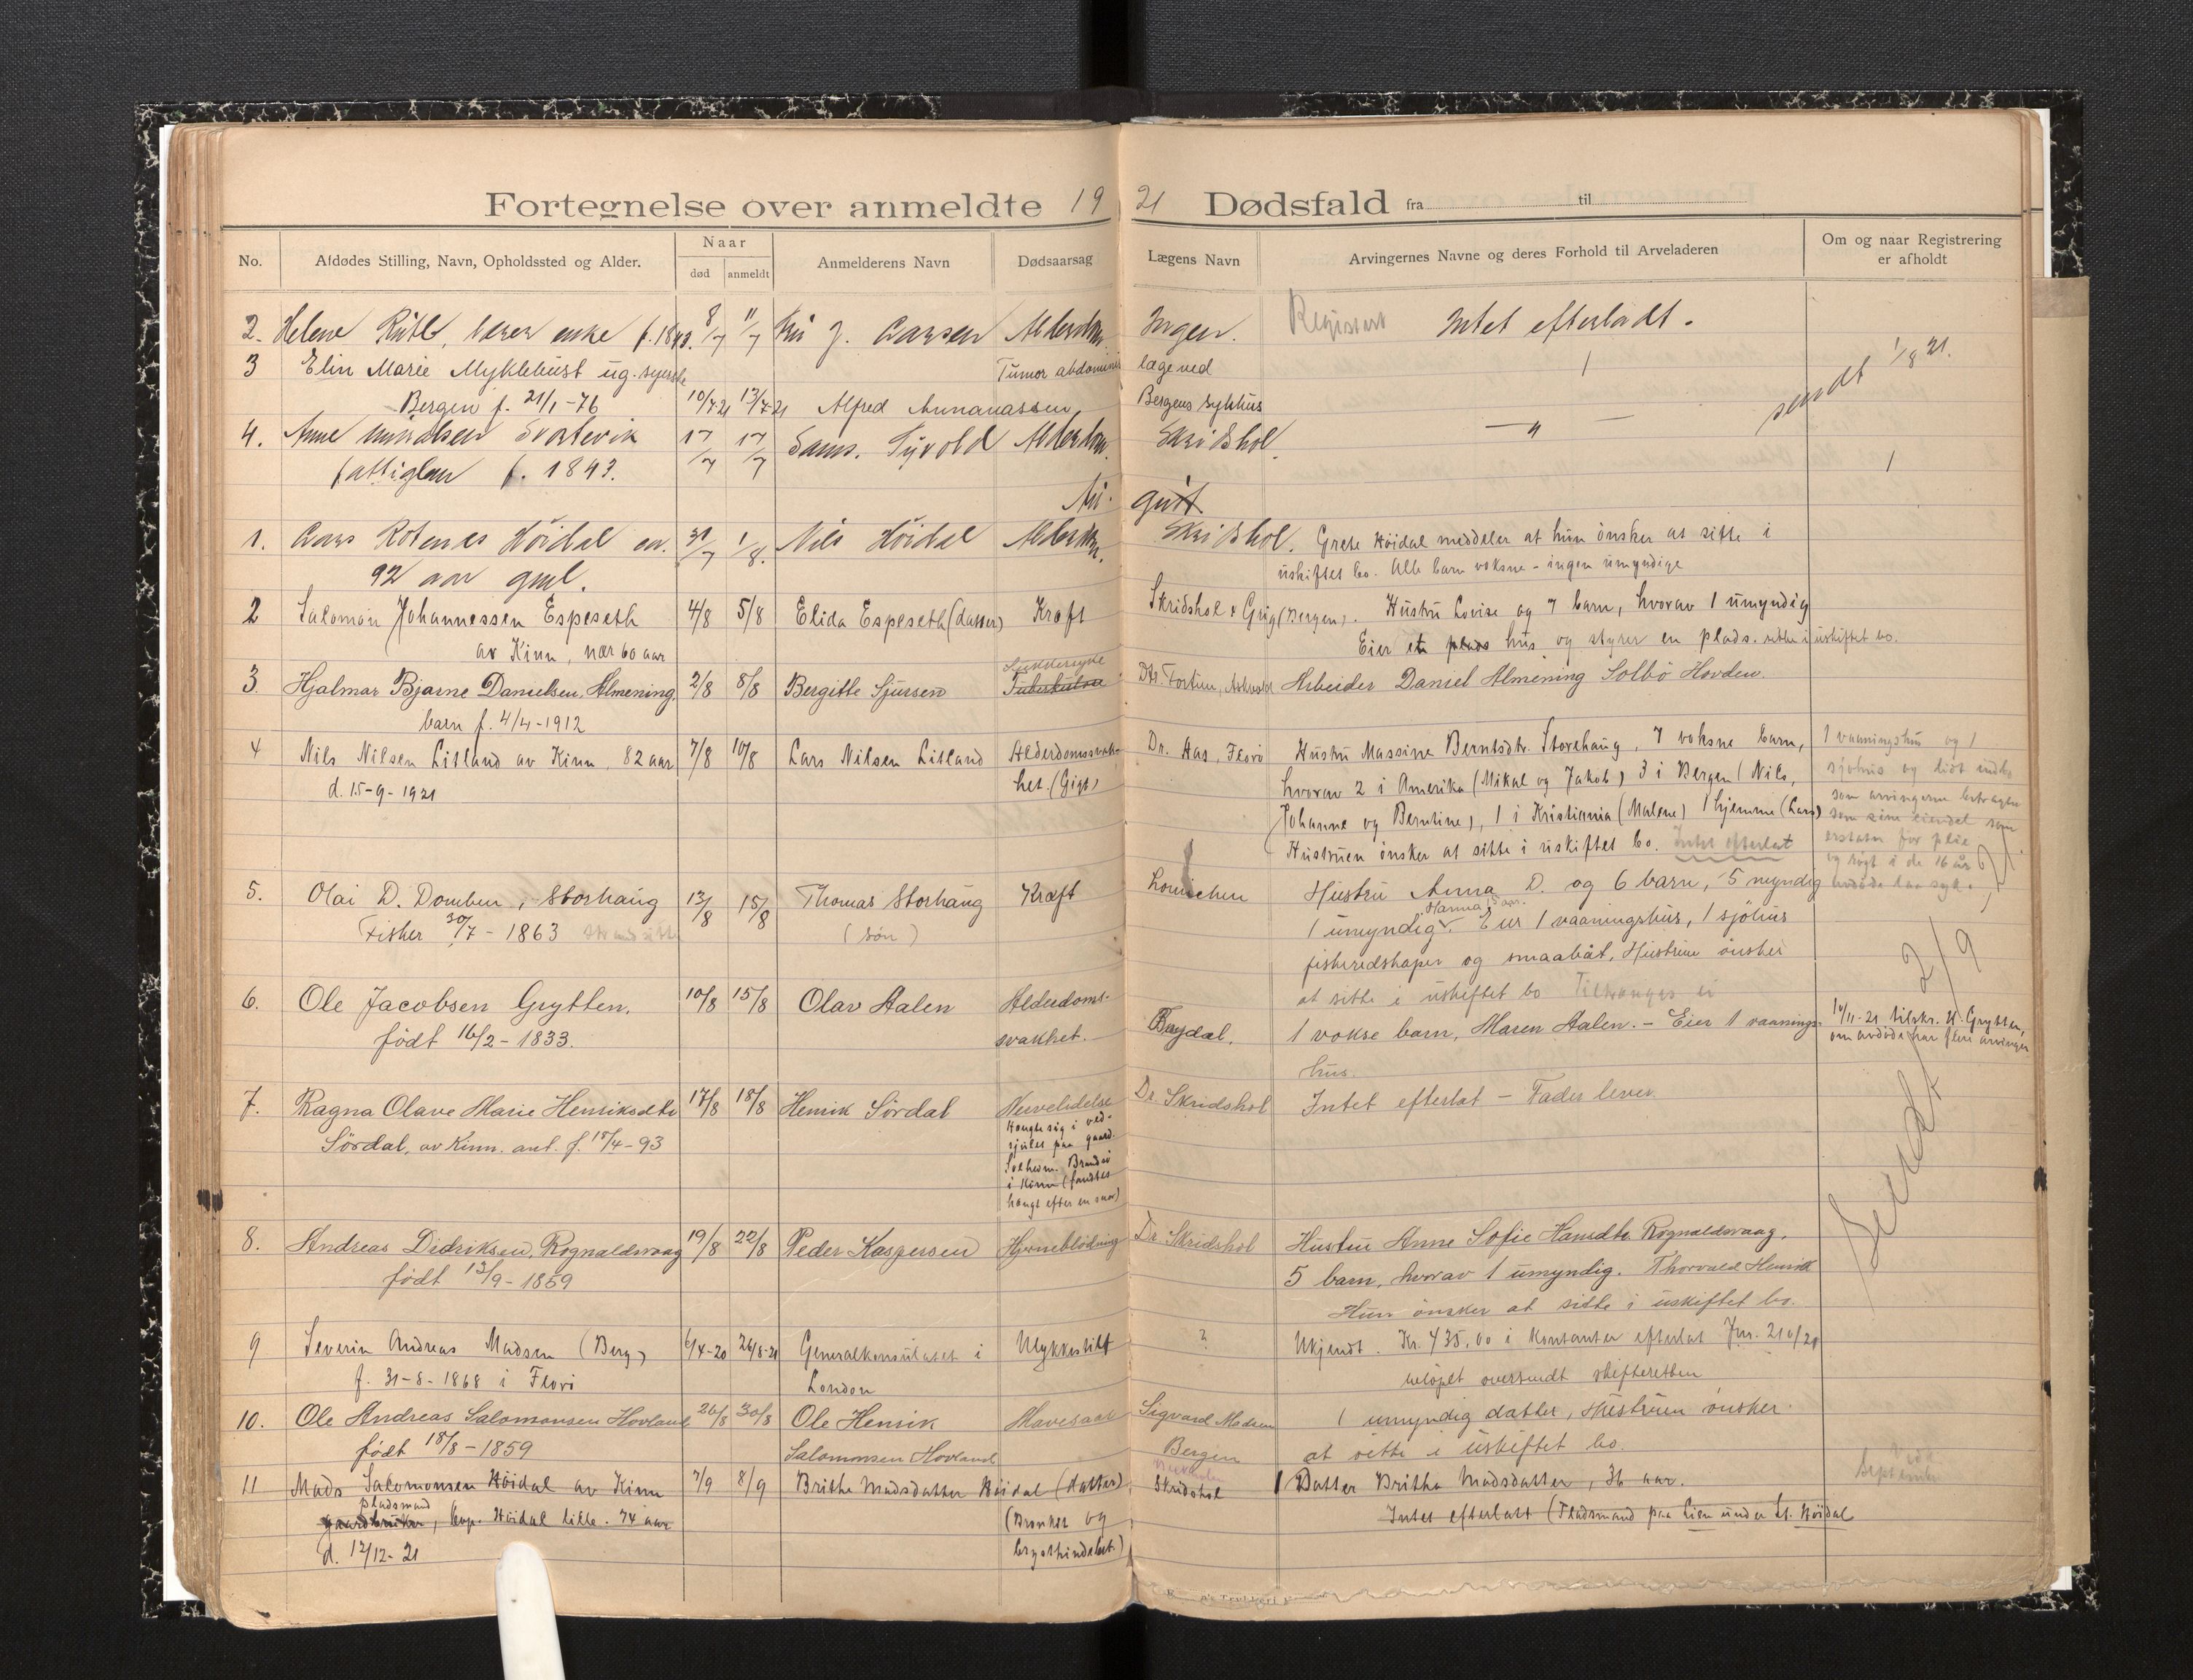 Fortegnelse over anmeldte 19 21 Dødsfald fra til
No. Afdødes Stilling, Navn, Opholdssted og Alder. Naar død anmeldt Anmelderens Navn Dødsaarsag Lægens Navn Arvingernes Navne og deres Forhold til Arveladeren Om og naar Registrering er afholdt
2. Helene enke f. 18 8/7 11/7 J. Larsen Alderdom Ingen. Registert Intet efterladt.
3 Elin Marie Myklebust ug. syerske Tumor abdominis læge ved
Bergen f. 21/1-76 10/7-21 13/7-21 Alfred Annanassen Bergens sykhus sendt 1/8 21.
4. Anne Svortevik 17/7 17/7 Sams. Alderdom. Skridshol. — " —
fattiglem f. 1843.
August
1. Lars Rotenes Höidal 31/7 1/8. Nils Höidal Alderdom. Skridshol. Grete Höidal meddeler at hun ønsker at sitte i
92 aar gml. uskiftet bo. Alle barn voksne - ingen umyndige
2 Salomon Johannessen Espeseth 4/8 5/8 Elida Espeseth (datter) Kræft Skridshol & Grig (Bergen). Hustru Lovise og 7 barn, hvorav 1 umyndig
av Kinn, nær 60 aar Eier et plads hus og styrer en plads. sitte i uskiftet bo.
3. Hjalmar Bjarne Danielsen, Almening, 2/8 8/8 Bergitte Sjursen Sukkersyke Tuberkulose Dr. Fortun, Askvold Arbeider Daniel Almening Solbö Hovden.
barn f. 4/4-1912
4 Nils Nilsen Litland av Kinn, 82 aar 7/8 10/8 Lars Nilsen Litland Alderdomssvak- Dr. Aas, Florö Hustru Massine Berntsdtr. Storehaug, 7 voksne barn, 1 vaaningshus og 1
d. 15-9-1921 het. (Gigt) hvorav 2 i Amerika (Mikal og Jakob) 3 i Bergen (Nils, sjøhus og lidt indbo
Johanne og Berntine), 1 i Kristiania (Malene) 1 hjemme (Lars) som arvingerne betragter
Hustruen ønsker at sitte i uskiftet bo. Intet efterlat som sine eiendel som
erstatn for pleie
og røgt i de 16 år
avdøde laa syk.
5. Olai D. Domben, Storhaug 13/8 15/8 Thomas Storhaug Kræft Hustru Anna D. og 6 barn, 5 myndig
Fisker 30/7 - 1863 (søn) 1 umyndig. Hanna 15 aar. Eier 1 vaaningshus, 1 sjöhus
fiskeredskaper og smaabåt, Hustruen ønsker
at sitte i uskiftet bo 2/9
6. Ole Jacobsen Grytten. 10/8 15/8 Olav Aalen Alderdoms- 1 vokse barn, Maren Aalen. - Eier 1 vaanings- 10/11-21 tilskr. H. Grytten,
født 16/2 - 1833. svakhet. hus. om avdøde har flere arvinger
7. Ragna Olave Marie Henriksdtr 17/8 18/8 Henrik Sördal Nervelidelse Dr. Skridshol Intet efterlat - Fader lever.
Sördal, av Kinn. ant. f. 18/4-93 Hængte sig i ved-
sjulet paa gaard.
Solheim. Brandsö
i Kinn (fandtes
hængt efter en snor)
Sendt
8. Andreas Didriksen, Rognaldsvaag 19/8 22/8 Peder Kaspersen Hjerneblödning Dr. Skridshol Hustru Anne Sofie Hansdtr. Rognaldsvaag.
født 13/9 - 1859 5 barn, hvorav 1 umyndig. Thorvald Henrik
Hun ønsker at sitte i uskiftet bo.
9 Severin Andreas Madsen (Berg) 6/4-20 26/8-21 Generalkonsulatet i Ulykkestilf ? Ukjendt. Kr. 435,00 i kontanter efterlat Jnr. 210/20
f. 31-8-1868 i Florö London beløpet oversendt skifteretten
10. Ole Andreas Salomonsen Hovland 26/8 30/8 Ole Henrik Mavesaar Sigvard Madsen 1 umyndig datter, Hustruen ønsker
født 18/8 - 1859 Salomonsen Hovland Bergen at sitte i uskiftet bo.
11 Mads Salomonsen Höidal av Kinn 7/9 8/9 Brithe Madsdatter Höidal (datter) Skridshol Datter Brithe Madsdatter, 36 aar. September
pladsmand gaardbruker, bop. Höidal lille. 74 aar (Bronkit og Intet efterlatt (Pladsmand paa Lien under Lt. Höidal
d. 12/12-21 brysthindebet.)